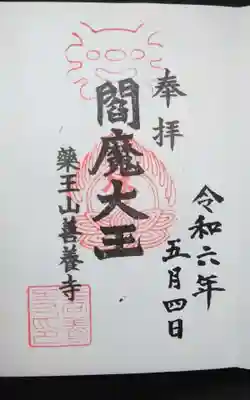 奉拝
令和六年
五月四日
閻魔大王
藥王山善養寺